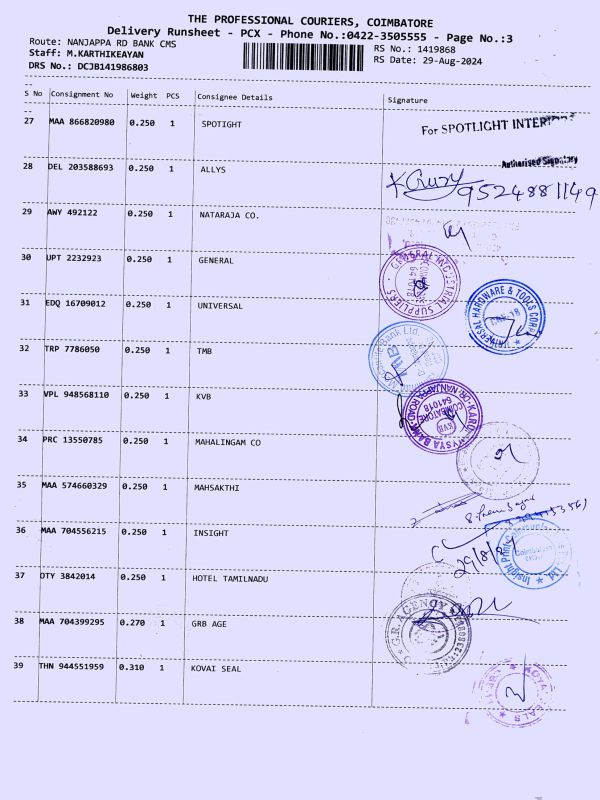 THE PROFESSIONAL COURIERS, COIMBATORE
Delivery Runsheet - PCX - Phone No.:0422-3505555 - Page No.:3
Route: NANJAPPA RD BANK CMS RS No.: 1419868
Staff: M.KARTHIKEAYAN RS Date: 29-Aug-2024
DRS No.: DCJB141986803
S No Consignment No Weight PCS Consignee Details Signature
27 MAA 866820980 0.250 1 SPOTIGHT
For SPOTLIGHT
Authorised Signatory
28 DEL 203588693 0.250 1 ALLYS
9524881149
29 AWY 492122 0.250 1 NATARAJA CO.
30 UPT 2232923 0.250 1 GENERAL
GENERAL SUPPLIERS
31 EDQ 16709012 0.250 1 UNIVERSAL
UNIVERSAL HARDWARE & TOOLS CORP
32 TRP 7786050 0.250 1 TMB
Bank Ltd.
TMB
33 VPL 948568110 0.250 1 KVB
VYSYA BANK
DR. NANJAPPA ROAD
COIMBATORE
641018
KVB
34 PRC 13550785 0.250 1 MAHALINGAM CO
35 MAA 574660329 0.250 1 MAHSAKTHI
36 MAA 704556215 0.250 1 INSIGHT
29/8/24
Insight
37 OTY 3842014 0.250 1 HOTEL TAMILNADU
38 MAA 704399295 0.270 1 GRB AGE
G.R. AGENCY
39 THN 944551959 0.310 1 KOVAI SEAL